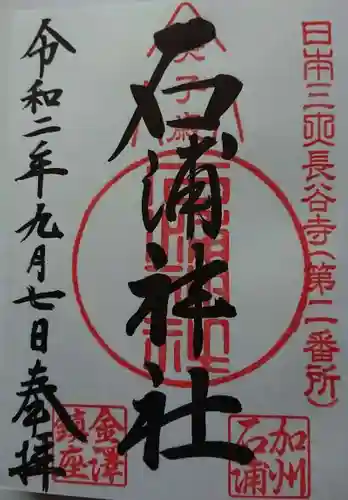 日本三所長谷寺(第二番所)
石浦神社
令和二年九月七日奉拝
加州
石浦
金澤
鎮座